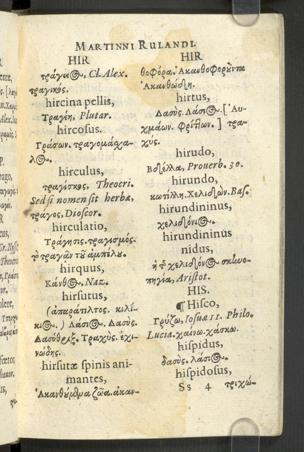 MARTINNI RULANDI.
HIR
τράγι@, Cl. Alex.
τραγικός.
hircina pellis,
Τραγέη, Plutar.
hircosus.
Γράσων. τραγομάσχα-
λ@.
hirculus,
τραγίσκος. Theocri.
Sed si nomen sit herbæ,
τράγος, Dioscor.
hirculatio,
Τράγησις. τραγισμός.
hirquus,
Κάνθ@. Naz.
hirsutus,
(ἀπαράτιλτος. κιλί-
κι@.) Λάσι@. Δασύς.
Δασύθριξ. Τραχύς. ἐχι-
νώδης.
hirsutæ spinis ani-
mantes,
HIR
Ἀκανθώδη.
hirtus,
Δασύς. Λάσι@. [Αὐ-
χμάων. Φρίττων.] τρα-
χύς.
hirudo,
Βδέλλα, Prouerb. 30.
hirundo,
κωτίλλη. Χελιδών. Bas.
hirundininus,
χελιδόνι@.
hirundininus
nidus,
πηγία, Aristot.
HIS.
¶ Hisco,
Γρύζω, Iosuæ 11. Philo.
Lucia. χαίνω. χάσκω.
hispidus,
δασύς. λάσι@.
hispidosus,
Ss 4 τριχώ-